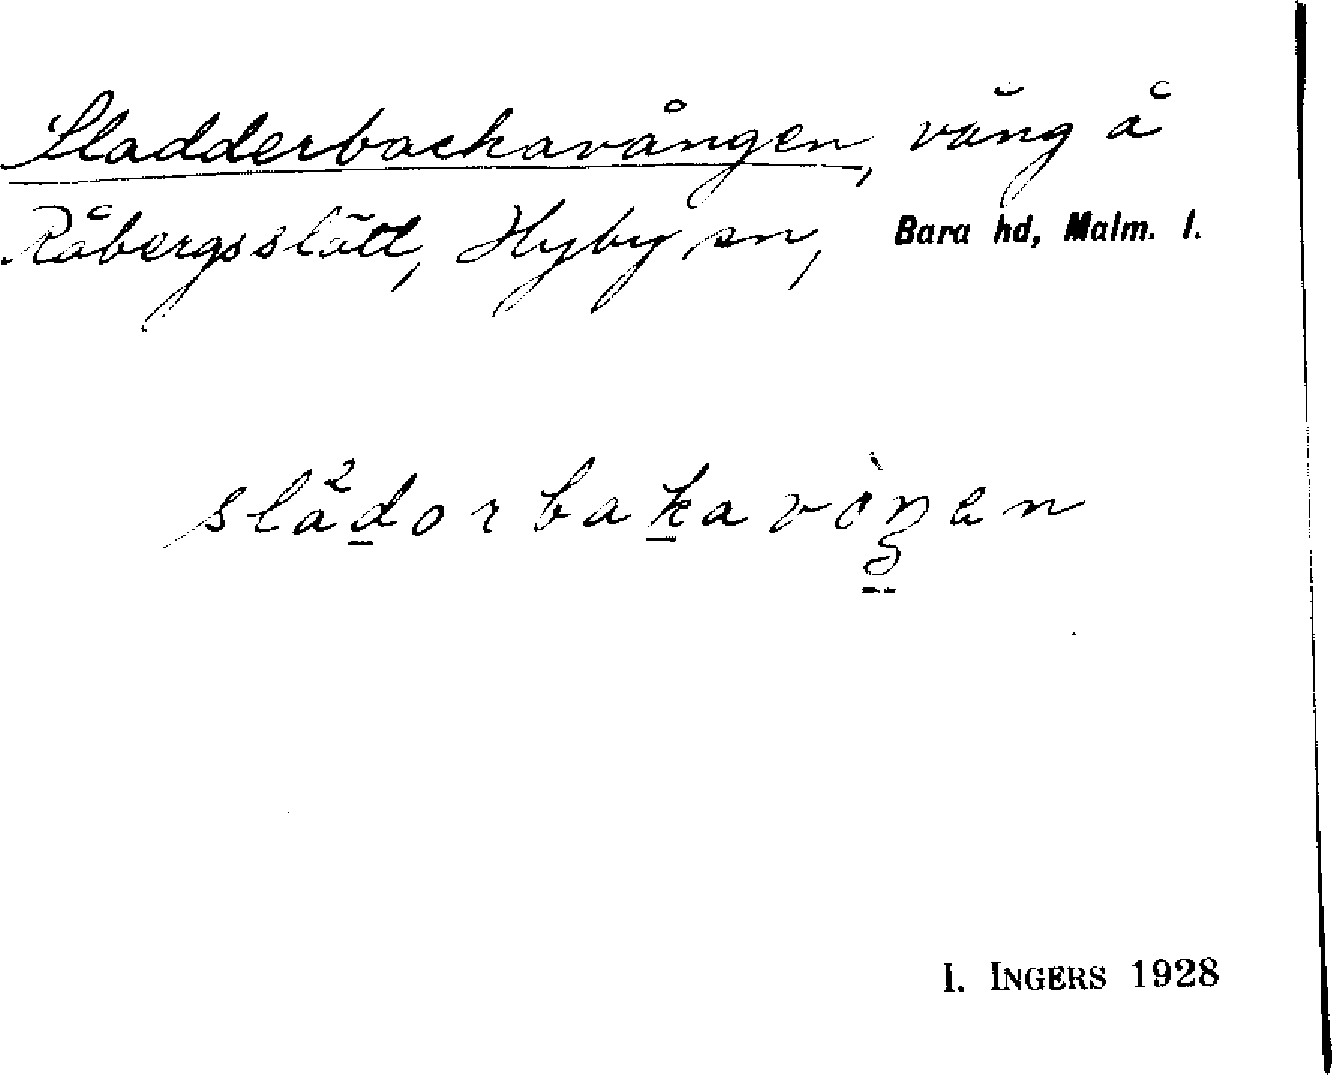 Sladderbackavången, vång å
Råbergsslätt, Hyby sn, Bara hd, Malm. l.
slå²dorbakavòŋen
I. INGERS 1928